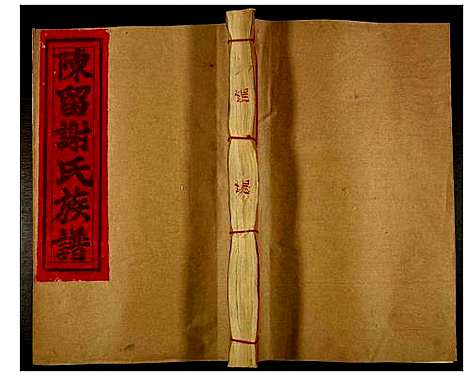 陳留謝氏族譜